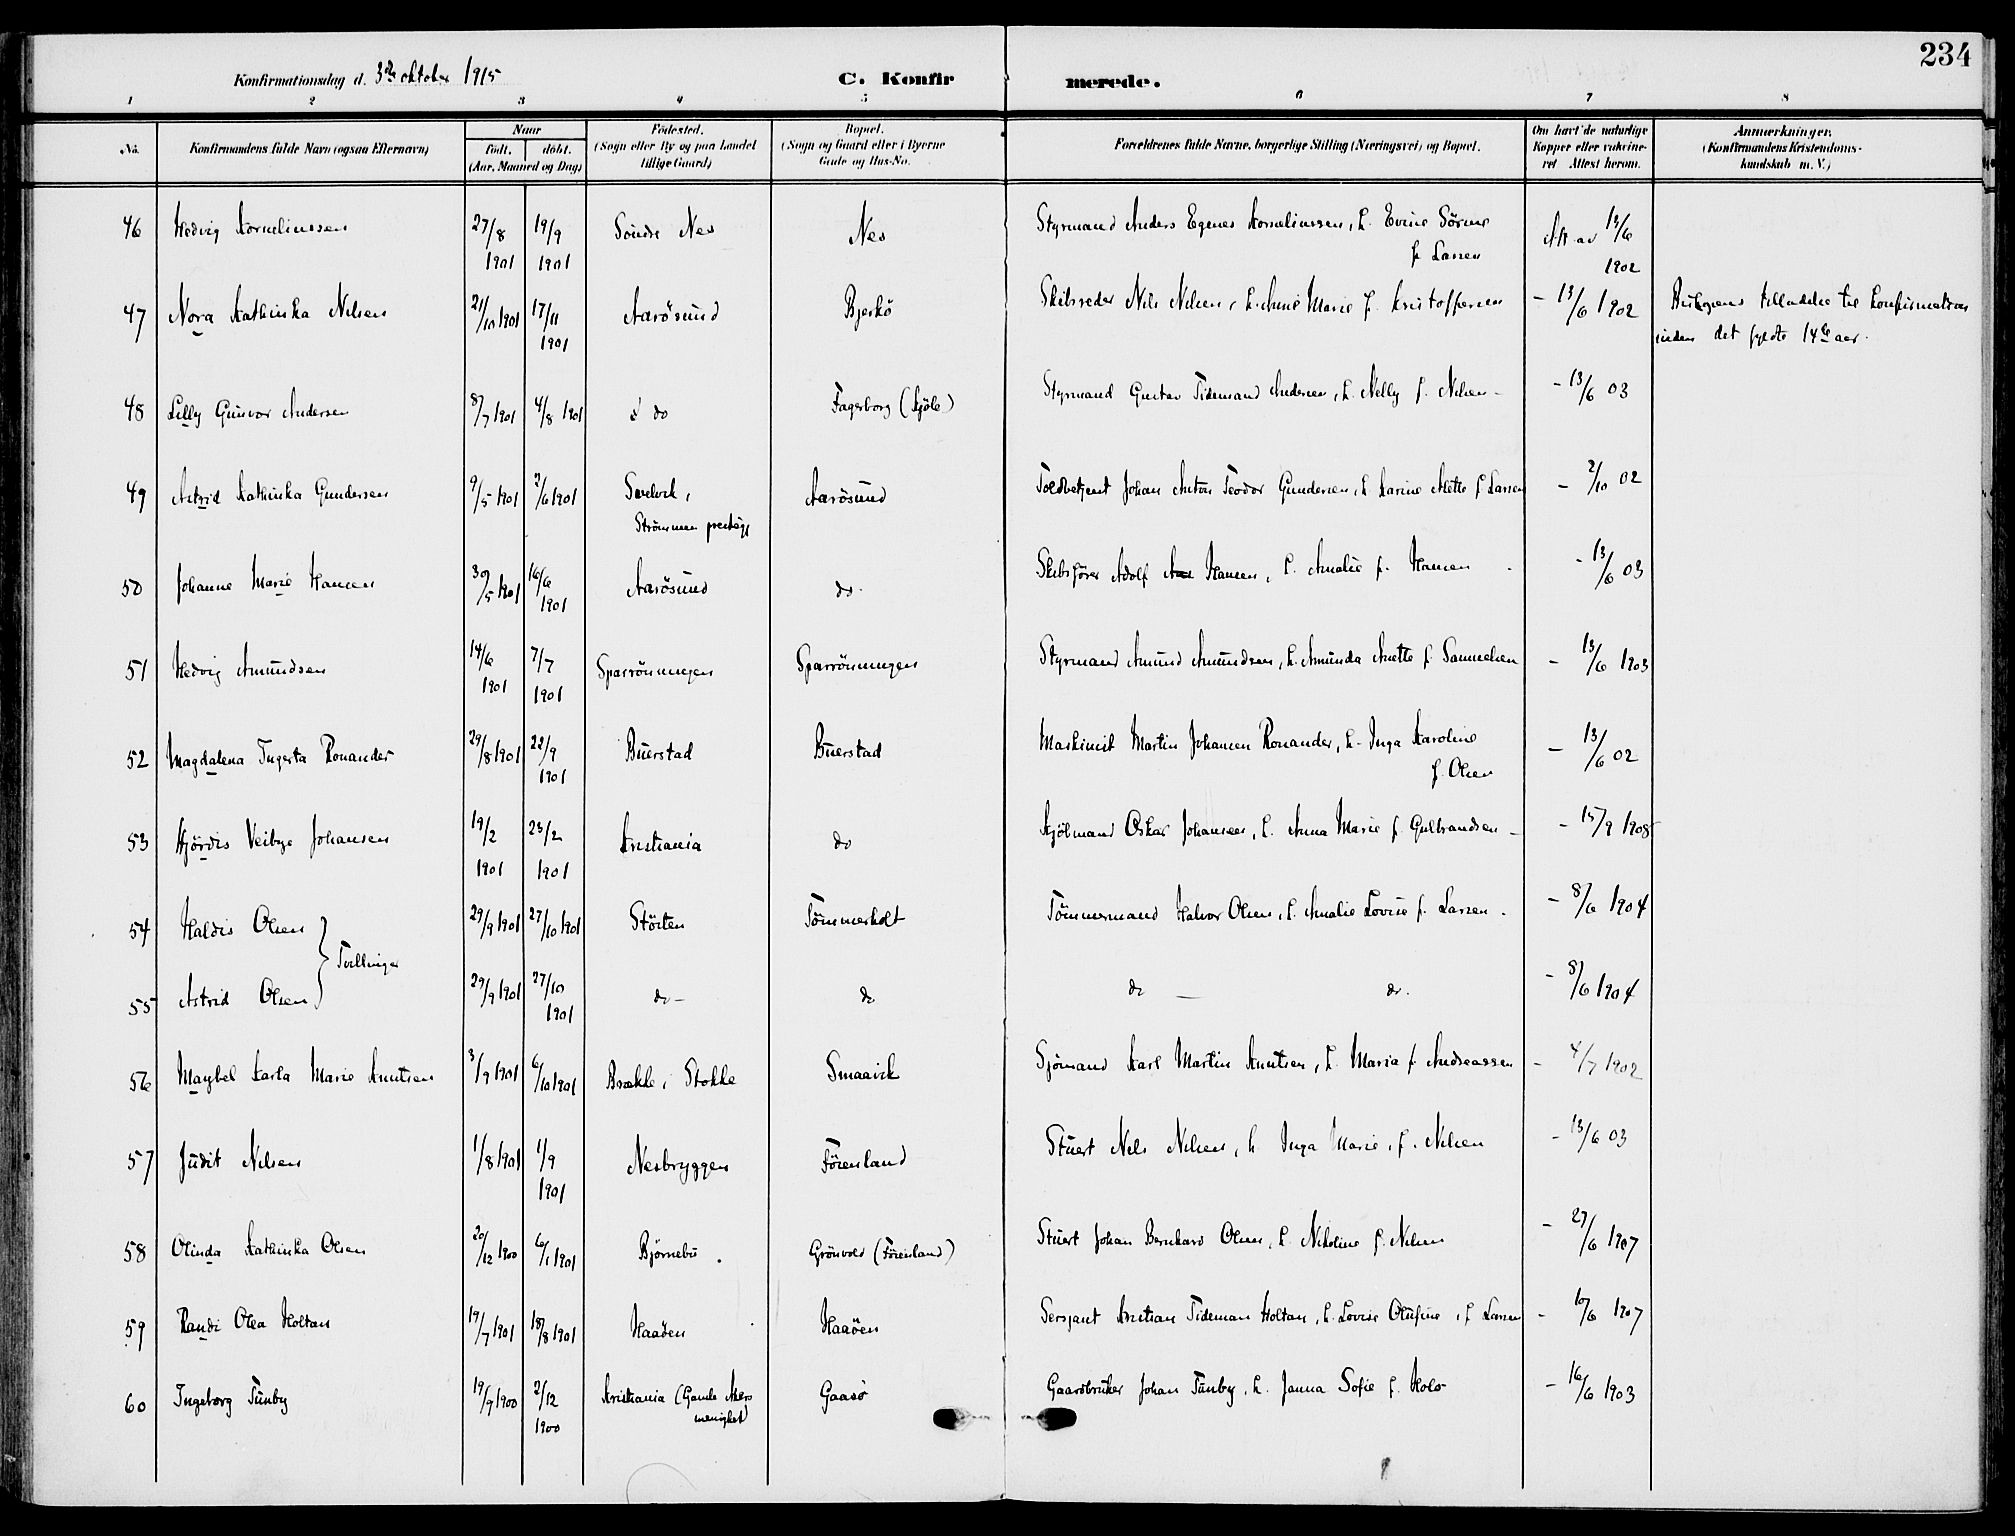 234
Konfirmationsdag d. 3die oktober 1915 C. Konfir merede.
1 2 3 4 5 6 7 8
No. Konfirmandens fulde Navn (ogsaa Efternavn) Naar født. døbt. (Aar, Maaned og Dag) Fødested. (Sogn eller By og paa Landet tillige Gaard) Bopæl. (Sogn og Gaard eller i Byerne Gade og Hus-No. Forældrenes fulde Navne, borgerlige Stilling (Næringsvei) og Bopæl. Om havt de naturlige Kopper eller vakcineret Attest herom. Anmærkninger. (Konfirmandens Kristendomskundskab m. V.)
46 Hedvig Kornelinssen 27/8 1901 19/9 1901 Søndre Nes Nes Styrmand Anders Egenes Kornelinssen, h. Evine Sørine f. Larsen Att. av 13/6 1902
47 Nora Kathinka Nilsen 21/10 1901 17/11 1901 Aarøsund Bjerkø Skibsreder Nils Nilsen, h. Anne Marie f. Kristoffersen – 13/6 1902 Biskopens tilladelse til konfirmation
inden det fyldte 14de aar.
48 Lilly Gunvor Andersen 8/7 1901 4/8 1901 do Fagerborg (Kjøle) Styrmand Gustav Tidemand Andersen, h. Nelly f. Nilsen – – 13/6 03
49 Astrid Kathinka Gundersen 9/5 1901 2/6 1901 Svelvik, Strømmen prestegj Aarøsund Toldbetjent Johan Anton Teodor Gundersen, h. Karine Mette f. Larsen – 2/10 02
50 Johanne Marie Hansen 30/5 1901 16/6 1901 Aarøsund do. Skibsfører Adolf Hansen, h. Amalie f. Hansen – 13/6 03
51 Hedvig Amundsen 14/6 1901 7/7 1901 Sparrønningen Sparrønningen Styrmand Amund Amundsen, h. Amunda Anette f. Samuelsen – 13/6 1903
52 Magdalena Ingerta Ronander 29/8 1901 22/9 1901 Buerstad Buerstad Maskinist Martin Johansen Ronander, h. Inga Karoline f. Olsen – 13/6 02
53 Hjørdis Veibye Johansen 19/2 1901 23/2 1901 Kristiania do Sjølmand Oskar Johansen, h. Anna Marie f. Gulbrandsen – – 15/9 1908
54 Haldis Olsen } Tvillinger 29/9 1901 27/10 1901 Støiten Tømmerholt Tømmermand Halvor Olsen, h. Amalie Lovise f. Larsen. – 8/6 1904
55 Astrid Olsen 29/9 1901 27/10 1901 do – do do — do. – 8/6 1904
56 Maybel Karla Marie Knutsen 3/9 1901 6/10 1901 Brække i Stokke Smaavik Sjømand Karl Martin Knutsen, h. Maria f. Andreassen – 4/7 1902
57 Judit Nilsen 1/8 1901 1/9 1901 Nesbryggen Føienland Stuert Nils Nilsen, h Inga Marie, f. Nilsen – 13/6 03
58 Olinda Kathinka Olsen 20/12 1900 6/1 1901 Bjørnebu. Grønvold (Føienland) Stuert Johan Bernhard Olsen, h. Nikoline f. Nilsen – 27/6 1907
59 Randi Olea Holtan 19/7 1901 18/8 1901 Haaøen Haaøen Sersjant Kristian Tideman Holtan, h. Lovise Olufine, f Larsen – 10/6 1907
60 Ingeborg Tunby 19/9 1900 2/12 1900 Kristiania (Gamle Akers menighet) Gaasø Gaardbruker Johan Tunby, h. Janna Sofie f. Holo – 16/6 1903